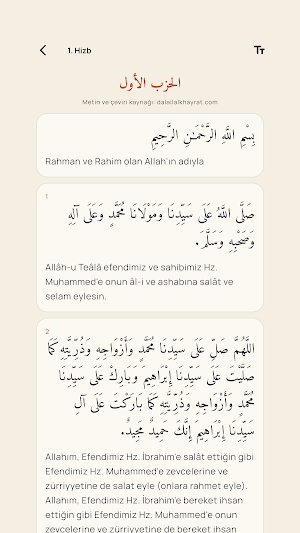 1. Hizb
TT
الحزب الأول
Metin ve çeviri kaynağı: dalailalkhayrat.com
بِسْمِ اللَّهِ الرَّحْمَـٰنِ الرَّحِيمِ
Rahman ve Rahim olan Allah'ın adıyla
1
صَلَّى اللَّهُ عَلَى سَيِّدِنَا وَمَوْلَانَا مُحَمَّدٍ وَعَلَى آلِهِ
وَصَحْبِهِ وَسَلَّمَ.
Allâh-u Teâlâ efendimiz ve sahibimiz Hz.
Muhammed'e onun âl-i ve ashabına salât ve
selam eylesin.
2
اللَّهُمَّ صَلِّ عَلَى سَيِّدِنَا مُحَمَّدٍ وَأَزْوَاجِهِ وَذُرِّيَّتِهِ كَمَا
صَلَّيْتَ عَلَى سَيِّدِنَا إِبْرَاهِيمَ وَبَارِكْ عَلَى سَيِّدِنَا
مُحَمَّدٍ وَأَزْوَاجِهِ وَذُرِّيَّتِهِ كَمَا بَارَكْتَ عَلَى آلِ
سَيِّدِنَا إِبْرَاهِيمَ إِنَّكَ حَمِيدٌ مَجِيدٌ.
Allahım, Efendimiz Hz. İbrahim'e salât ettiğin gibi
Efendimiz Hz. Muhammed'e zevcelerine ve
zürriyyetine de salat eyle (onlara rahmet eyle).
Allahım, Efendimiz Hz. İbrahim'e bereket ihsan
ettiğin gibi Efendimiz Hz. Muhammed'e onun
zevcelerine ve zürriyyetine de bereket ihsan